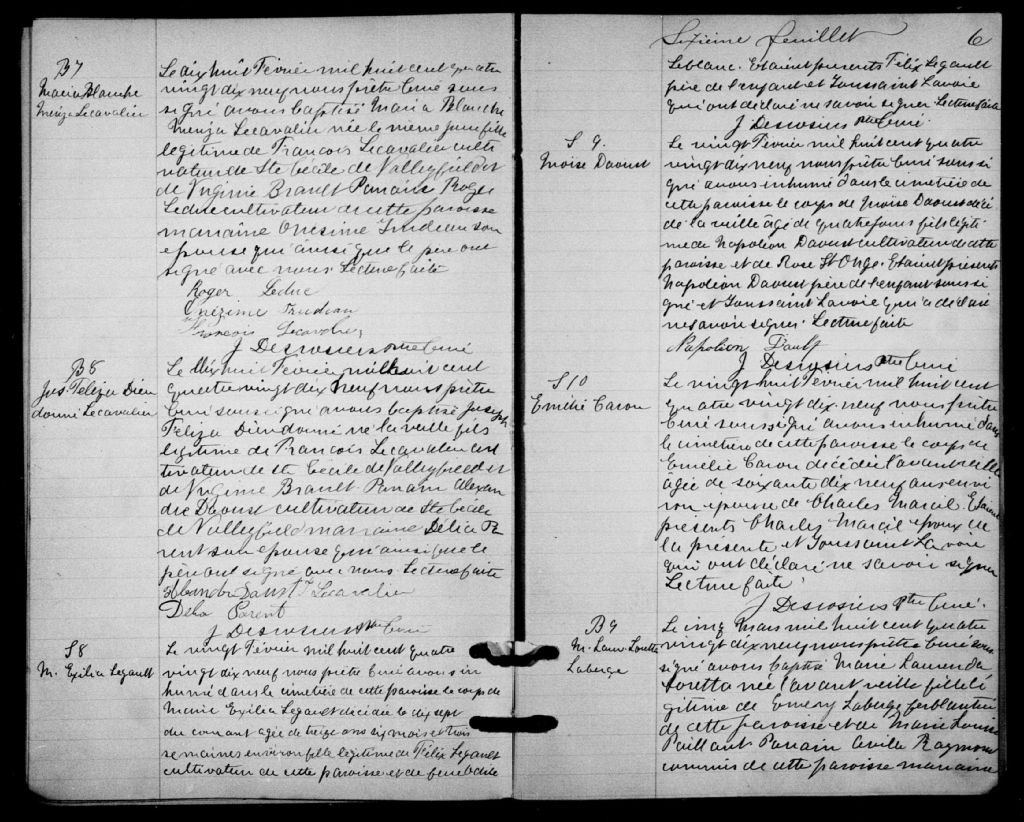 B7
Maria Blanche
Menza Lecavalier
Le dix huit Février mil huit cent quatre
vingt dix neuf nous prêtre curé sous
signé avons baptisé Maria Blanche
Menza Lecavalier née le même jour fille
légitime de François Lecavalier culti
vateur de Ste Cécile de Valleyfield et
de Virginie Brault Parrain Roger
Leduc cultivateur de cette paroisse
marraine Onesime Trudeau son
épouse qui ainsi que le père ont
signé avec nous. Lecture faite
Roger Leduc
Onezime Trudeau
François Lecavalier
J Desrosiers Ptre Curé
B8
Jos. Feliza Dieu
donné Lecavalier
Le Dix huit Février mil huit cent
quatre vingt dix neuf nous prêtre
curé soussigné avons baptisé Joseph
Feliza Dieudonné né la veille fils
légitime de François Lecavalier cul
tivateur de Ste Cécile de Valleyfield et
de Virginie Brault Parrain Alexan
dre Daoust cultivateur de Ste Cécile
de Valleyfield marraine Délia Pa
rent son épouse qui ainsi que le
père ont signé avec nous Lecture faite
Alexandre Daoust F Lecavalier
Délia Parent
J Desrosiers Ptre Curé
S8
M. Exilia Legault
Le vingt Février mil huit cent quatre
vingt dix neuf nous prêtre Curé avons in
humé dans le cimetière de cette paroisse le corps de
Marie Exilia Legault décédée le dix sept
du courant agée de treize ans six mois et trois
semaines environ fille légitime de Félix Legault
cultivateur de cette paroisse et de
Sixième feuillet 6
Leblanc. Etaient présents Félix Legault
père de l'enfant et Toussaint Lavoie
qui ont déclaré ne savoir signer Lecture faite
J Desrosiers Ptre Curé.
S 9.
Moise Daoust
Le vingt Février mil huit cent quatre
vingt dix neuf nous prêtre Curé soussi
gné avons inhumé dans le cimetière de
cette paroisse le corps de Moise Daoust décé
dé la veille âgé de quatre jours fils légiti
me de Napoléon Daoust cultivateur de cette
paroisse et de Rose St Onge. Etaient présents
Napoléon Daoust père de l'enfant soussi
gné et Toussaint Lavoie qui a déclaré
ne savoir signer. Lecture faite
Napoléon Daoust
J Desrosiers Ptre Curé
S10
Emélie Caron
Le vingt huit Février mil huit cent
quatre vingt dix-neuf nous prêtre
Curé soussigné avons inhumé dans
le cimetière de cette paroisse le corps de
Emélie Caron décédée l'avant veille
agée de soixante dix neuf ans envi
ron épouse de Charles Marcil. Etaient
présents Charles Marcil époux de
la présente et Toussaint Lavoie
qui ont déclaré ne savoir signer
Lecture faite
J Desrosiers Ptre Curé.
B9
M. Laur. Loretta
Laberge
Le cinq Mars mil huit cent quatre
vingt dix neuf nous prêtre Curé sous
signé avons baptisé Marie Laurenda
Loretta née l'avant veille fille lé
gitime de Emery Laberge ferblantier
de cette paroisse et de Marie Louise
Vaillant Parrain Raymond
commis de cette paroisse marraine